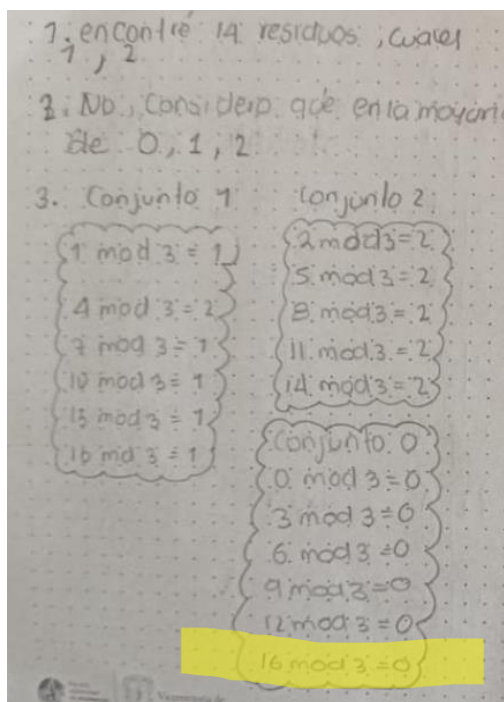 1. encontré 14 residuos, cuales
1, 2
2. No, considero que en la mayoría
de 0, 1, 2
3. Conjunto 1
1 mod 3 = 1
4 mod 3 = 2
7 mod 3 = 1
10 mod 3 = 1
13 mod 3 = 1
16 md 3 = 1
Conjunto 2
2 mod 3 = 2
5 mod 3 = 2
8 mod 3 = 2
11 mod 3 = 2
14 mod 3 = 2
Conjunto 0
0 mod 3 = 0
3 mod 3 = 0
6 mod 3 = 0
9 mod 3 = 0
12 mod 3 = 0
16 mod 3 = 0